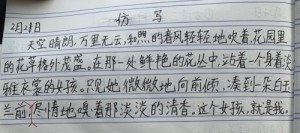 仿写
2月28日
天空晴朗,万里无云,和煦的春风轻轻地吹着,花园里
的花草格外茂盛。在那一处鲜艳的花丛中,站着一个身着淡
雅衣裳的女孩。只见她微微地向前倾,凑到一朵白玉
兰前,尽情地嗅着那淡淡的清香。这个女孩,就是我。